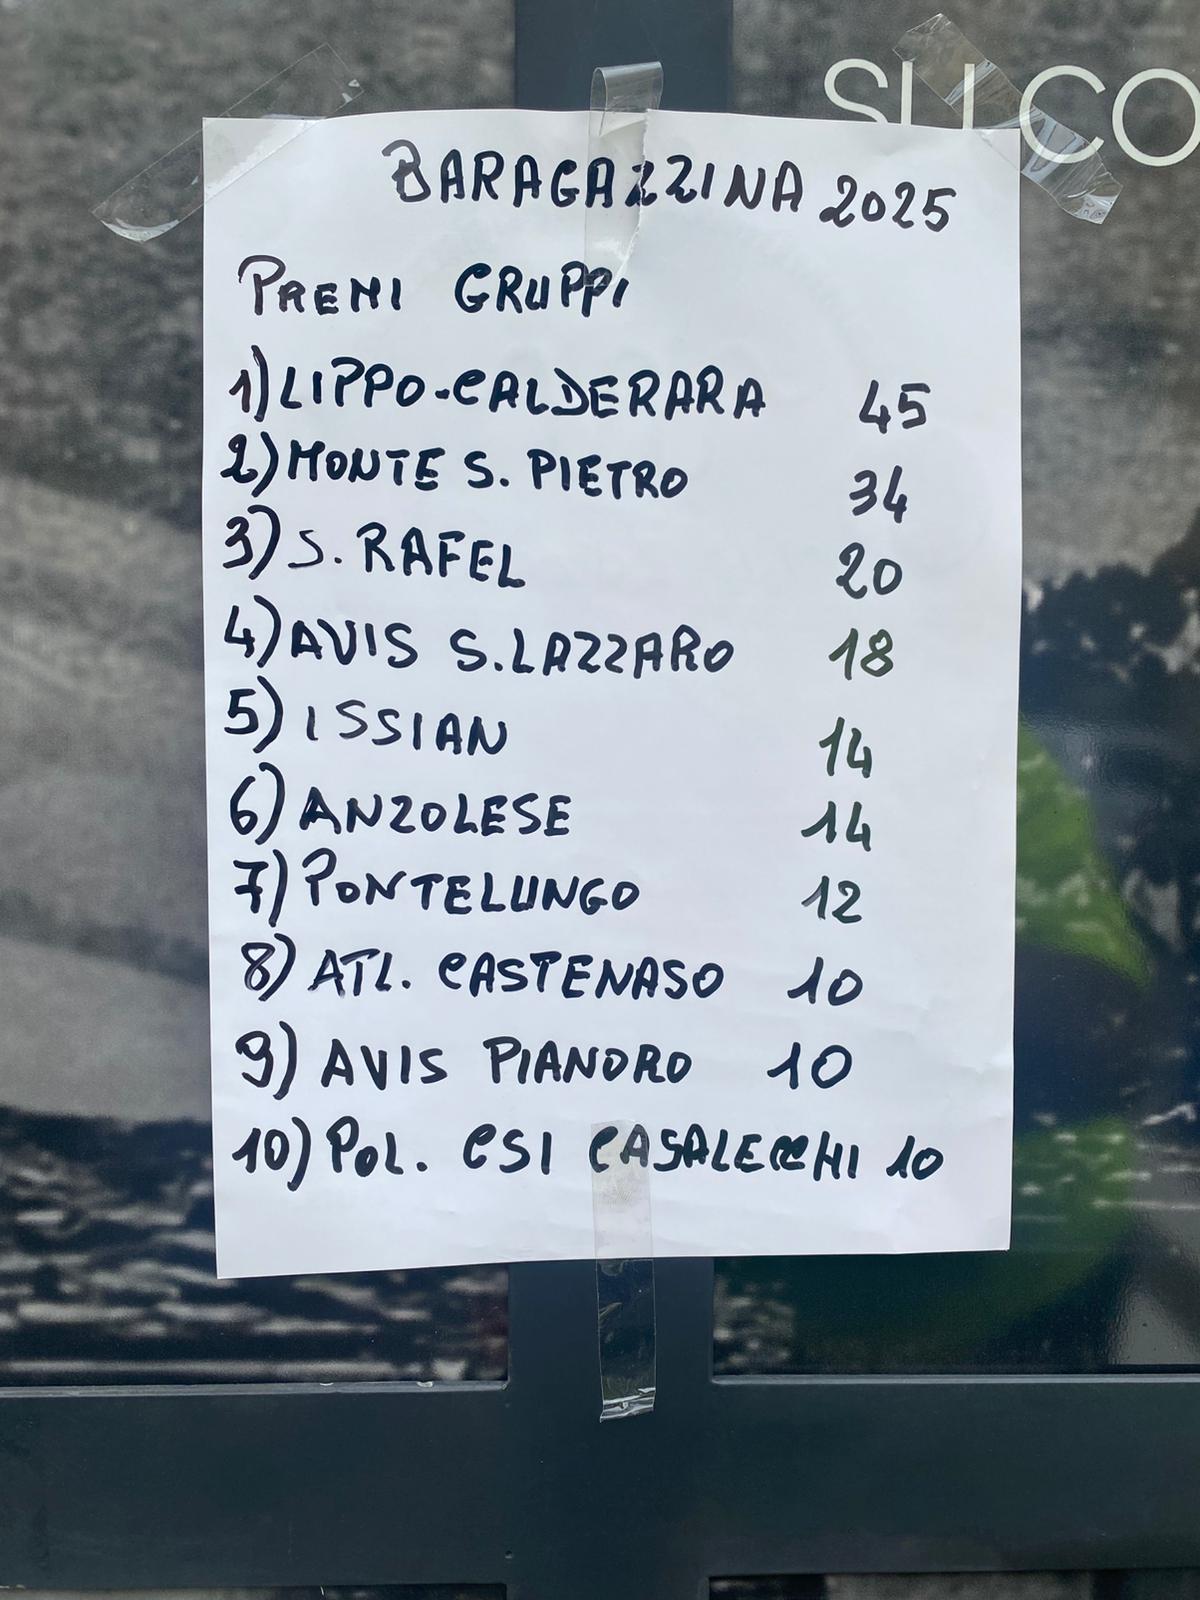 SU CO
BARAGAZZINA 2025
PREMI GRUPPI
1) LIPPO-CALDERARA 45
2) MONTE S. PIETRO 34
3) S. RAFEL 20
4) AVIS S. LAZZARO 18
5) ISSIAN 14
6) ANZOLESE 14
7) PONTELUNGO 12
8) ATL. CASTENASO 10
9) AVIS PIANORO 10
10) POL. CSI CASALECCHI 10